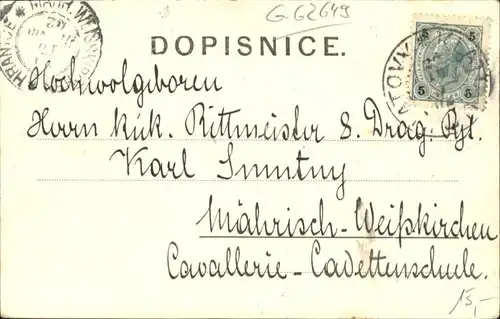 G-62649
HRANICE * MÄHR. WEISSKIRCHEN
5 5
5 5
DOPISNICE.
Hochwolgeboren
Herrn k.u.k. Rittmeister 8. Drag. Rgt.
Karl
Mährisch-Weißkirchen
Cavallerie-Cadettenschule.
15,-